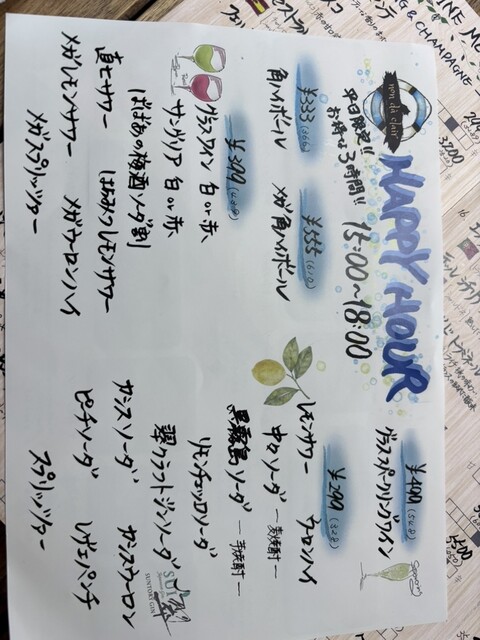 HAPPY HOUR
平日限定!!
お得な3時間!!
15:00~18:00
¥333(366)
角ハイボール
¥555(610)
メガ角ハイボール
¥399(438)
グラスワイン 白or赤
サングリア 白or赤
ばばあの梅酒ソーダ割
直七サワー はちみつレモンサワー
メガレモンサワー メガウーロンハイ
メガスプリッツァー
¥499(548)
グラススパークリングワイン
¥299(328)
レモンサワー ウーロンハイ
中々ソーダ ー麦焼酎ー
黒霧島ソーダ ー芋焼酎ー
リモンチェッロソーダ
翠クラフトジンソーダ
翠
SUI
SUNTORY GIN
カシスソーダ カシスウーロン
ピーチソーダ レゲエパンチ
スプリッツァー
& CHAMPAGNE
3200